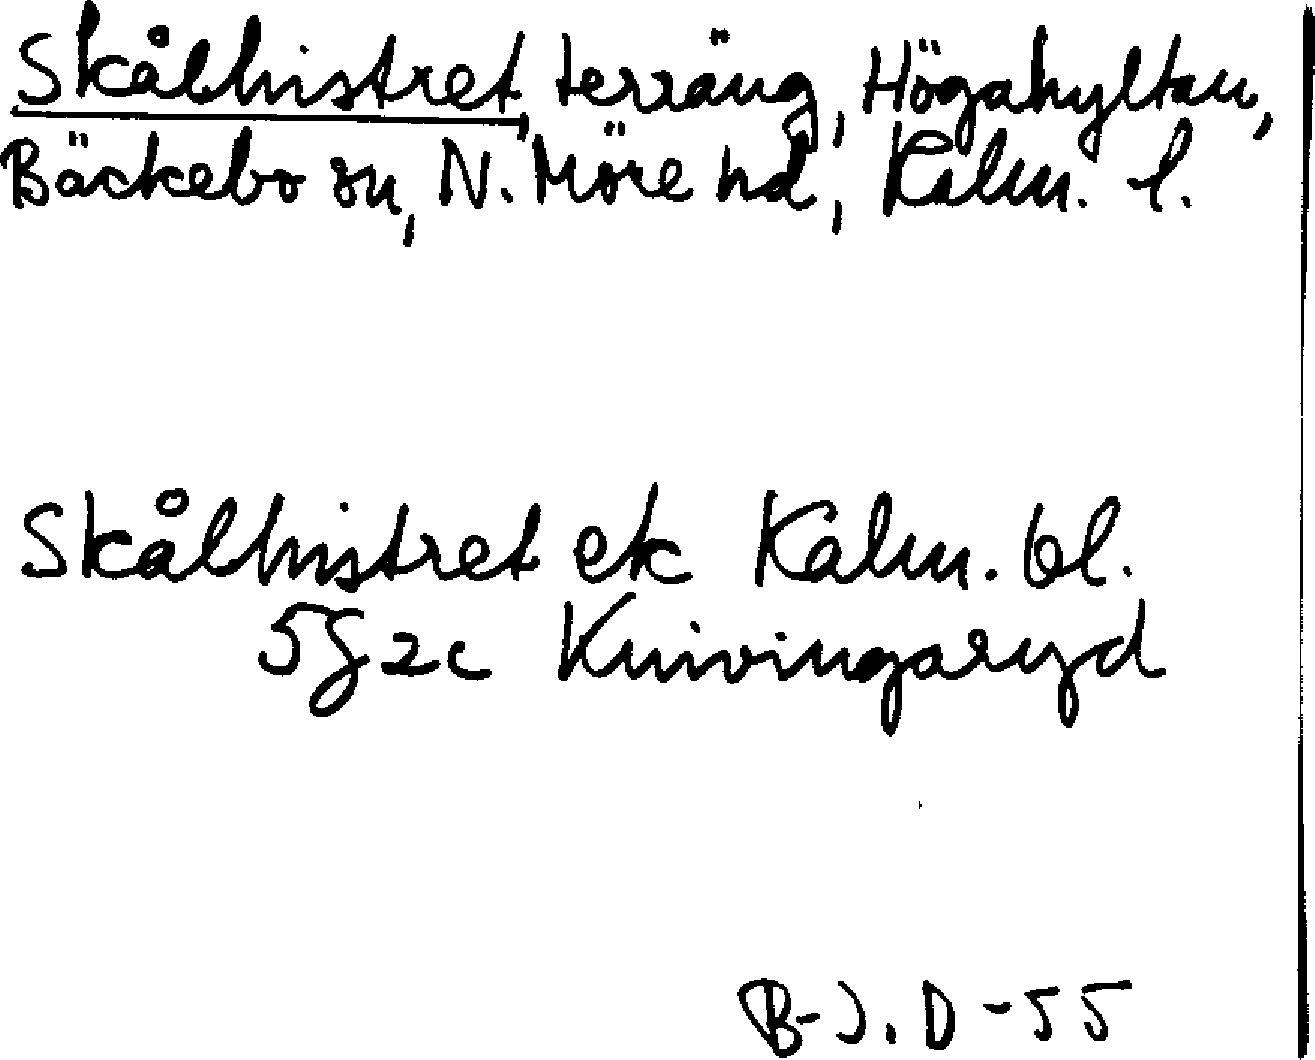 Skålhistret, terräng, Högahyltan,
Bäckebo sn, N. Möre hd, Kalm. l.
Skålhistret ek Kalm. bl.
5G 2c Knivingaryd
B-J. D-55